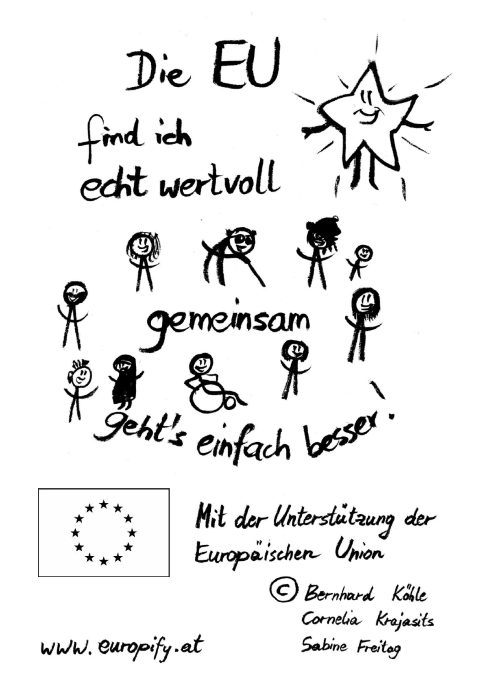 Die EU
find ich
echt wertvoll
gemeinsam
geht's einfach besser!
Mit der Unterstützung der
Europäischen Union
© Bernhard Köhle
Cornelia Krajasits
Sabine Freitag
www.europify.at